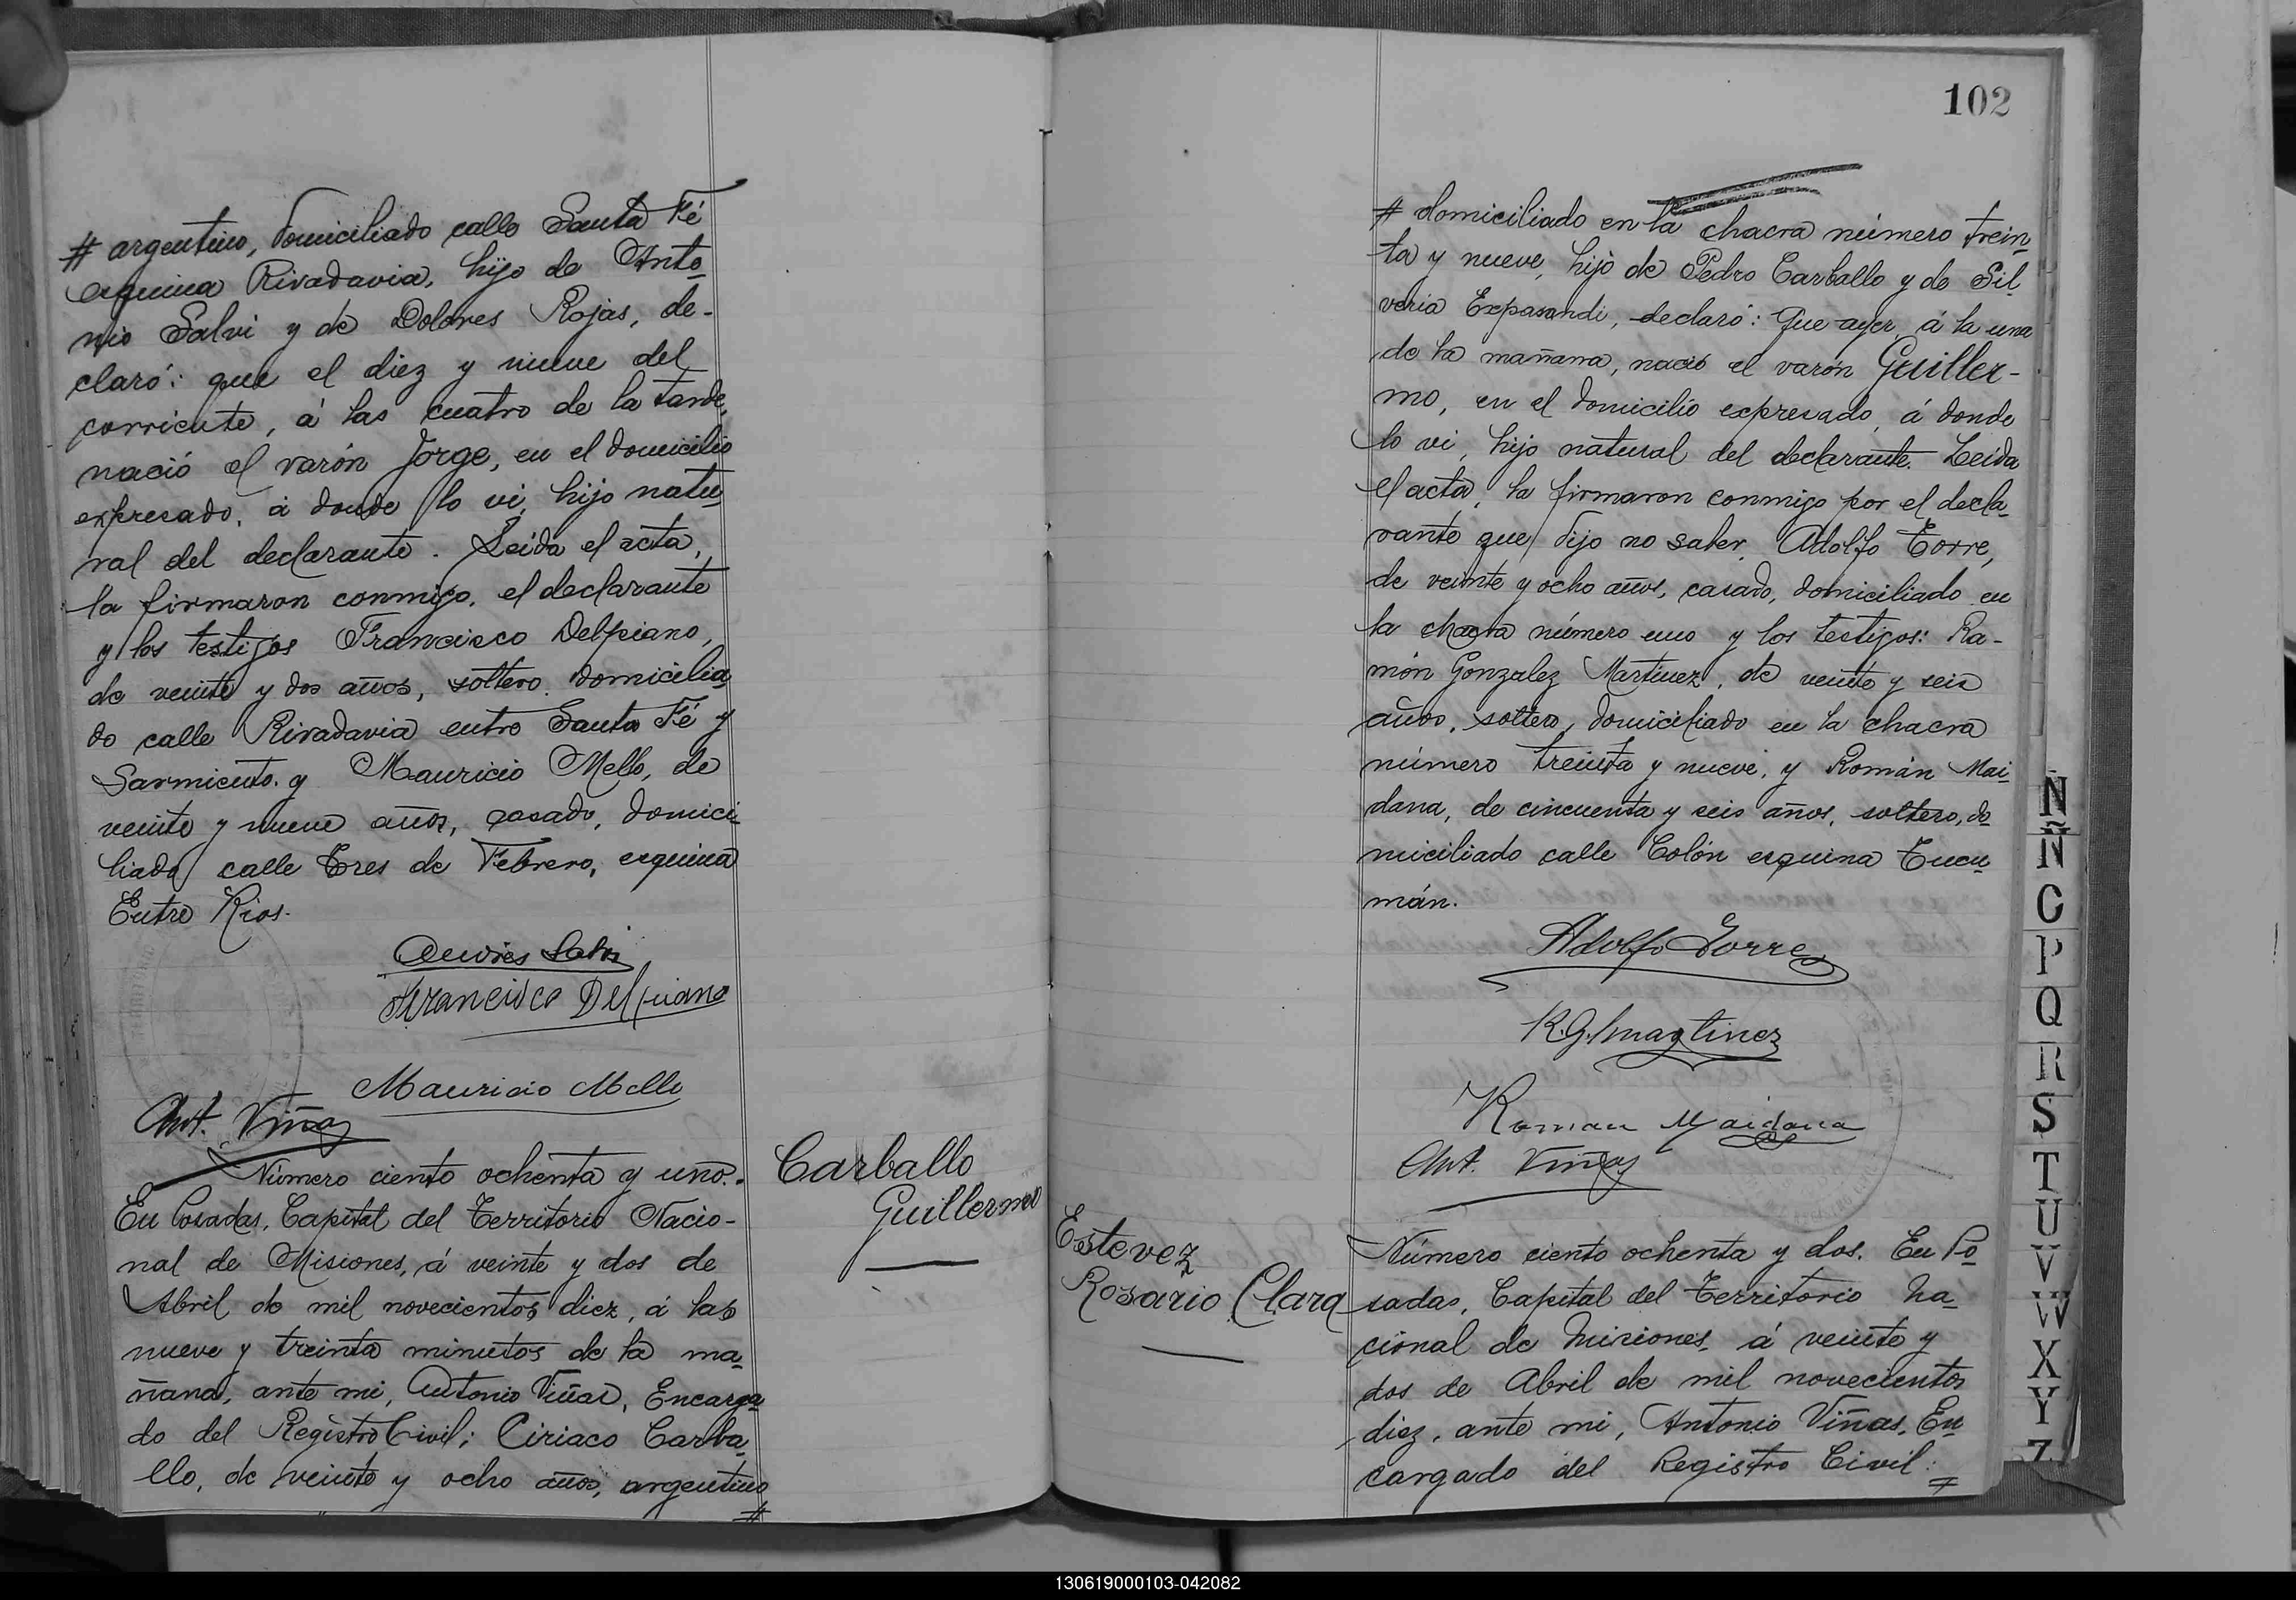 # argentino, domiciliado calle Santa Fé
esquina Rivadavia, hijo de Anto-
nio Salvi y de Dolores Rojas, de-
claró: que el diez y nueve del
corriente, á las cuatro de la tarde,
nació el varón Jorge, en el domicilio
expresado, á donde lo vi, hijo natu-
ral del declarante. Leida el acta,
la firmaron conmigo, el declarante
y los testigos Francisco Delpiano,
de veinte y dos años, soltero, domicilia-
do calle Rivadavia entre Santa Fé y
Sarmiento, y Mauricio Mello, de
veinte y nueve años, casado, domici-
liado calle Tres de Febrero, esquina
Entre Rios.
Francisco Delpiano
Mauricio Mello
Ant. Viñas
Número ciento ochenta y uno.
En Posadas, Capital del Territorio Nacio-
nal de Misiones, á veinte y dos de
Abril de mil novecientos diez, á las
nueve y treinta minutos de la ma-
ñana, ante mi, Antonio Viñas, Encarga-
do del Registro Civil; Ciriaco Carba-
llo, de veinte y ocho años, argentino
#
Carballo
Guillermo
102
# domiciliado en la chacra número trein-
ta y nueve, hijo de Pedro Carballo y de Sil-
veria Expasandi, declaró: Que ayer á la una
de la mañana, nació el varón Guiller-
mo, en el domicilio expresado, á donde
lo vi, hijo natural del declarante. Leida
el acta, la firmaron conmigo por el decla-
rante que dijo no saber, Adolfo Torre,
de veinte y ocho años, casado, domiciliado en
la chacra número uno y los testigos: Ra-
món Gonzalez Martinez, de veinte y seis
años, soltero, domiciliado en la chacra
número treinta y nueve, y Román Mai-
dana, de cincuenta y seis años, soltero, do-
miciliado calle Colón esquina Tucu-
mán.
Adolfo Torre
R. G. Martinez
Roman Maidana
Ant. Viñas
Estevez
Rosario Clara
Número ciento ochenta y dos. En Po-
sadas, Capital del Territorio Na-
cional de Misiones, á veinte y
dos de Abril de mil novecientos
diez, ante mi, Antonio Viñas, En-
cargado del Registro Civil:
#
N
Ñ
P
Q
R
S
T
U
V
W
X
Y
Z
130619000103-042082